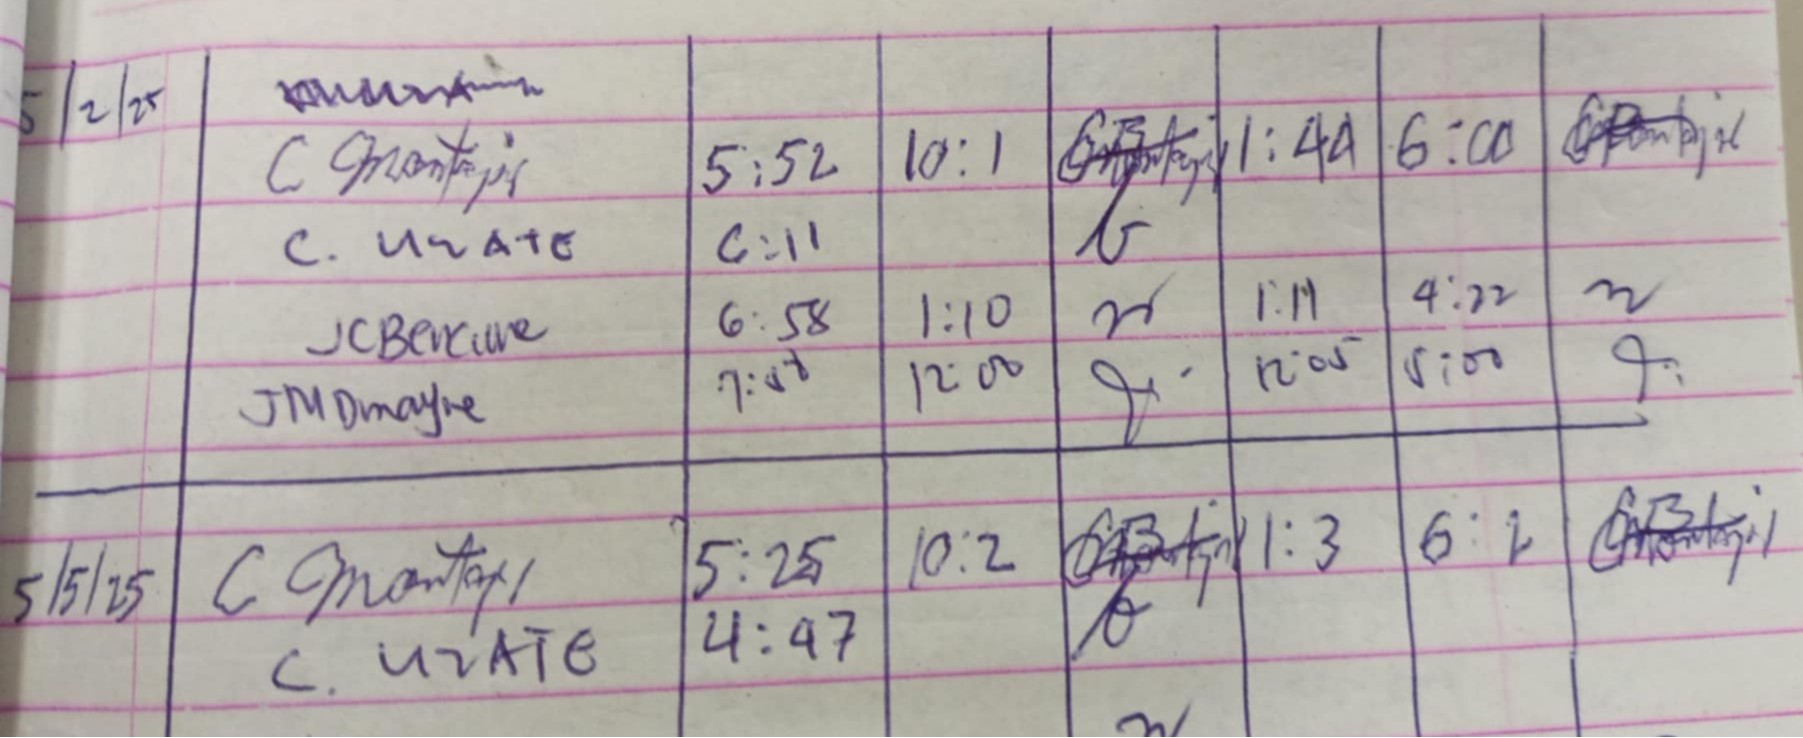 5/2/25
C Montajis 5:52 10:1 1:40 6:00
C. URATE 6:11
JCBercure 6:58 1:10 1:11 4:22
JMDmayne 7:50 12:00 12:05 5:00
5/5/25 C Montajs 5:25 10:2 1:3 6:2
C. URATE 4:47